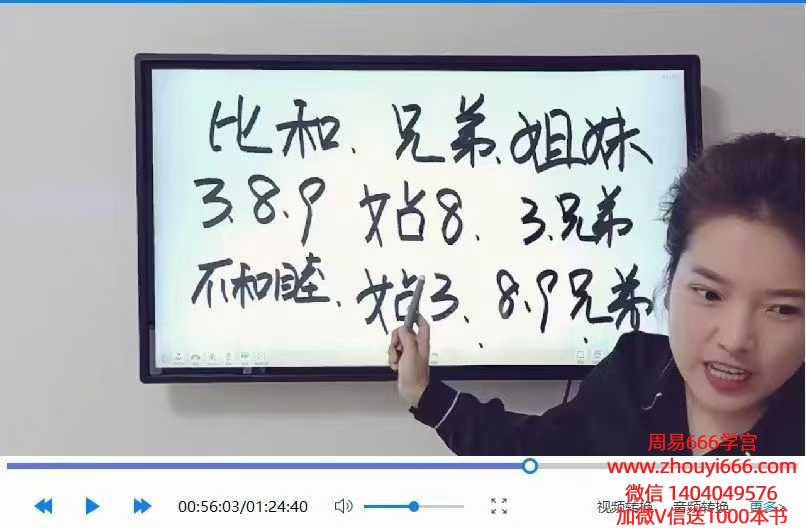 比和、兄弟、姐妹
3、8、9 站8、3、兄弟
不和睦、站3、8、9兄弟
周易666学宫
www.zhouyi666.com
微信 1404049576
00:56:03/01:24:40 视频转换 音频转换 更多
加微V信送1000本书